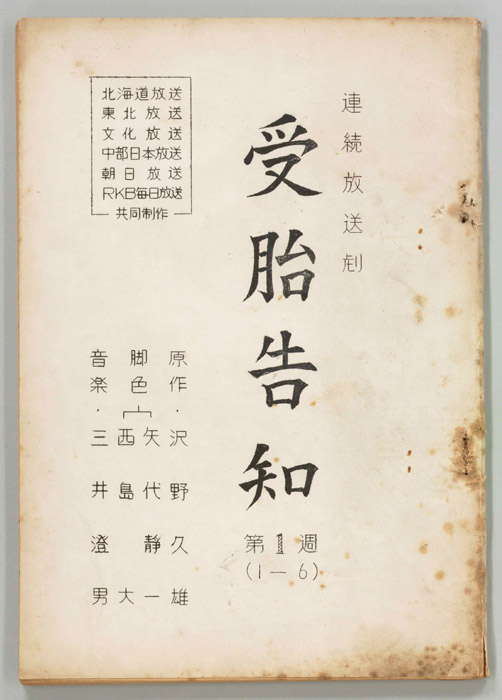 連続放送劇
受胎告知
第1週
(1—6)
原作・沢野久雄
脚色
矢代静一
西島大
音楽・三井澄男
北海道放送
東北放送
文化放送
中部日本放送
朝日放送
RKB毎日放送
共同制作